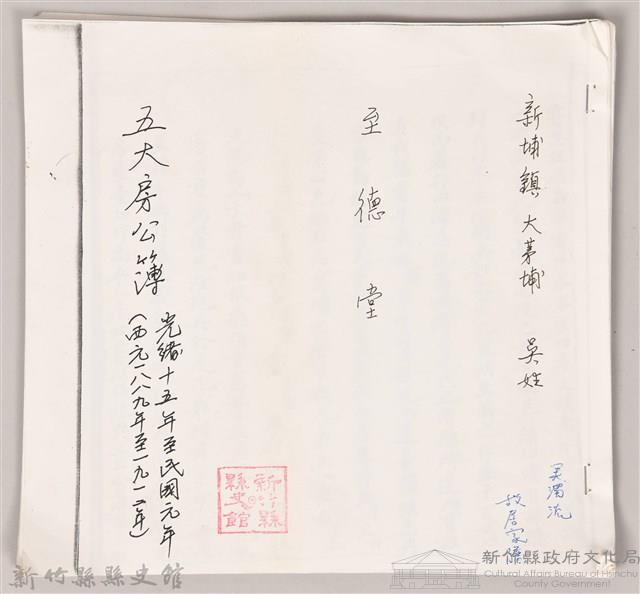 新埔鎮 大茅埔 吳姓
至德堂
五大房公簿
光緒十五年至民國元年
(西元一八八九年至一九一二年)
吳濁流
故居家譜
新竹縣
縣史館
新竹縣縣史館
新竹縣政府文化局
Cultural Affairs Bureau of Hsinchu
County Government